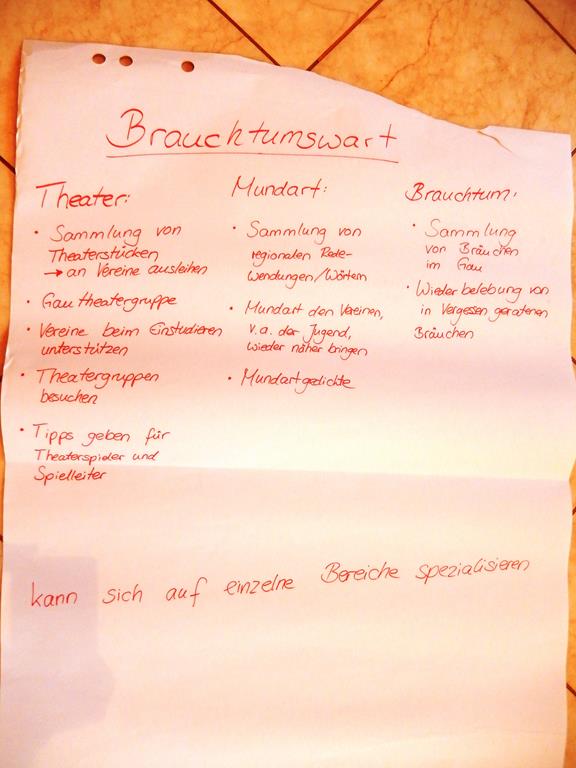 Brauchtumswart
Theater:
• Sammlung von
Theaterstücken
→ an Vereine ausleihen
• Gautheatergruppe
• Vereine beim Einstudieren
unterstützen
• Theatergruppen
besuchen
• Tipps geben für
Theaterspieler und
Spielleiter
Mundart:
• Sammlung von
regionalen Rede-
wendungen/Wörtern
• Mundart den Vereinen,
v.a. der Jugend,
wieder näher bringen
• Mundartgedichte
Brauchtum:
• Sammlung
von Bräuchen
im Gau
• Wiederbelebung von
in Vergessen geratenen
Bräuchen
kann sich auf einzelne Bereiche spezialisieren